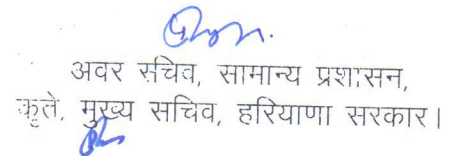 अवर सचिव, सामान्य प्रशासन,
कृते. मुख्य सचिव, हरियाणा सरकार।